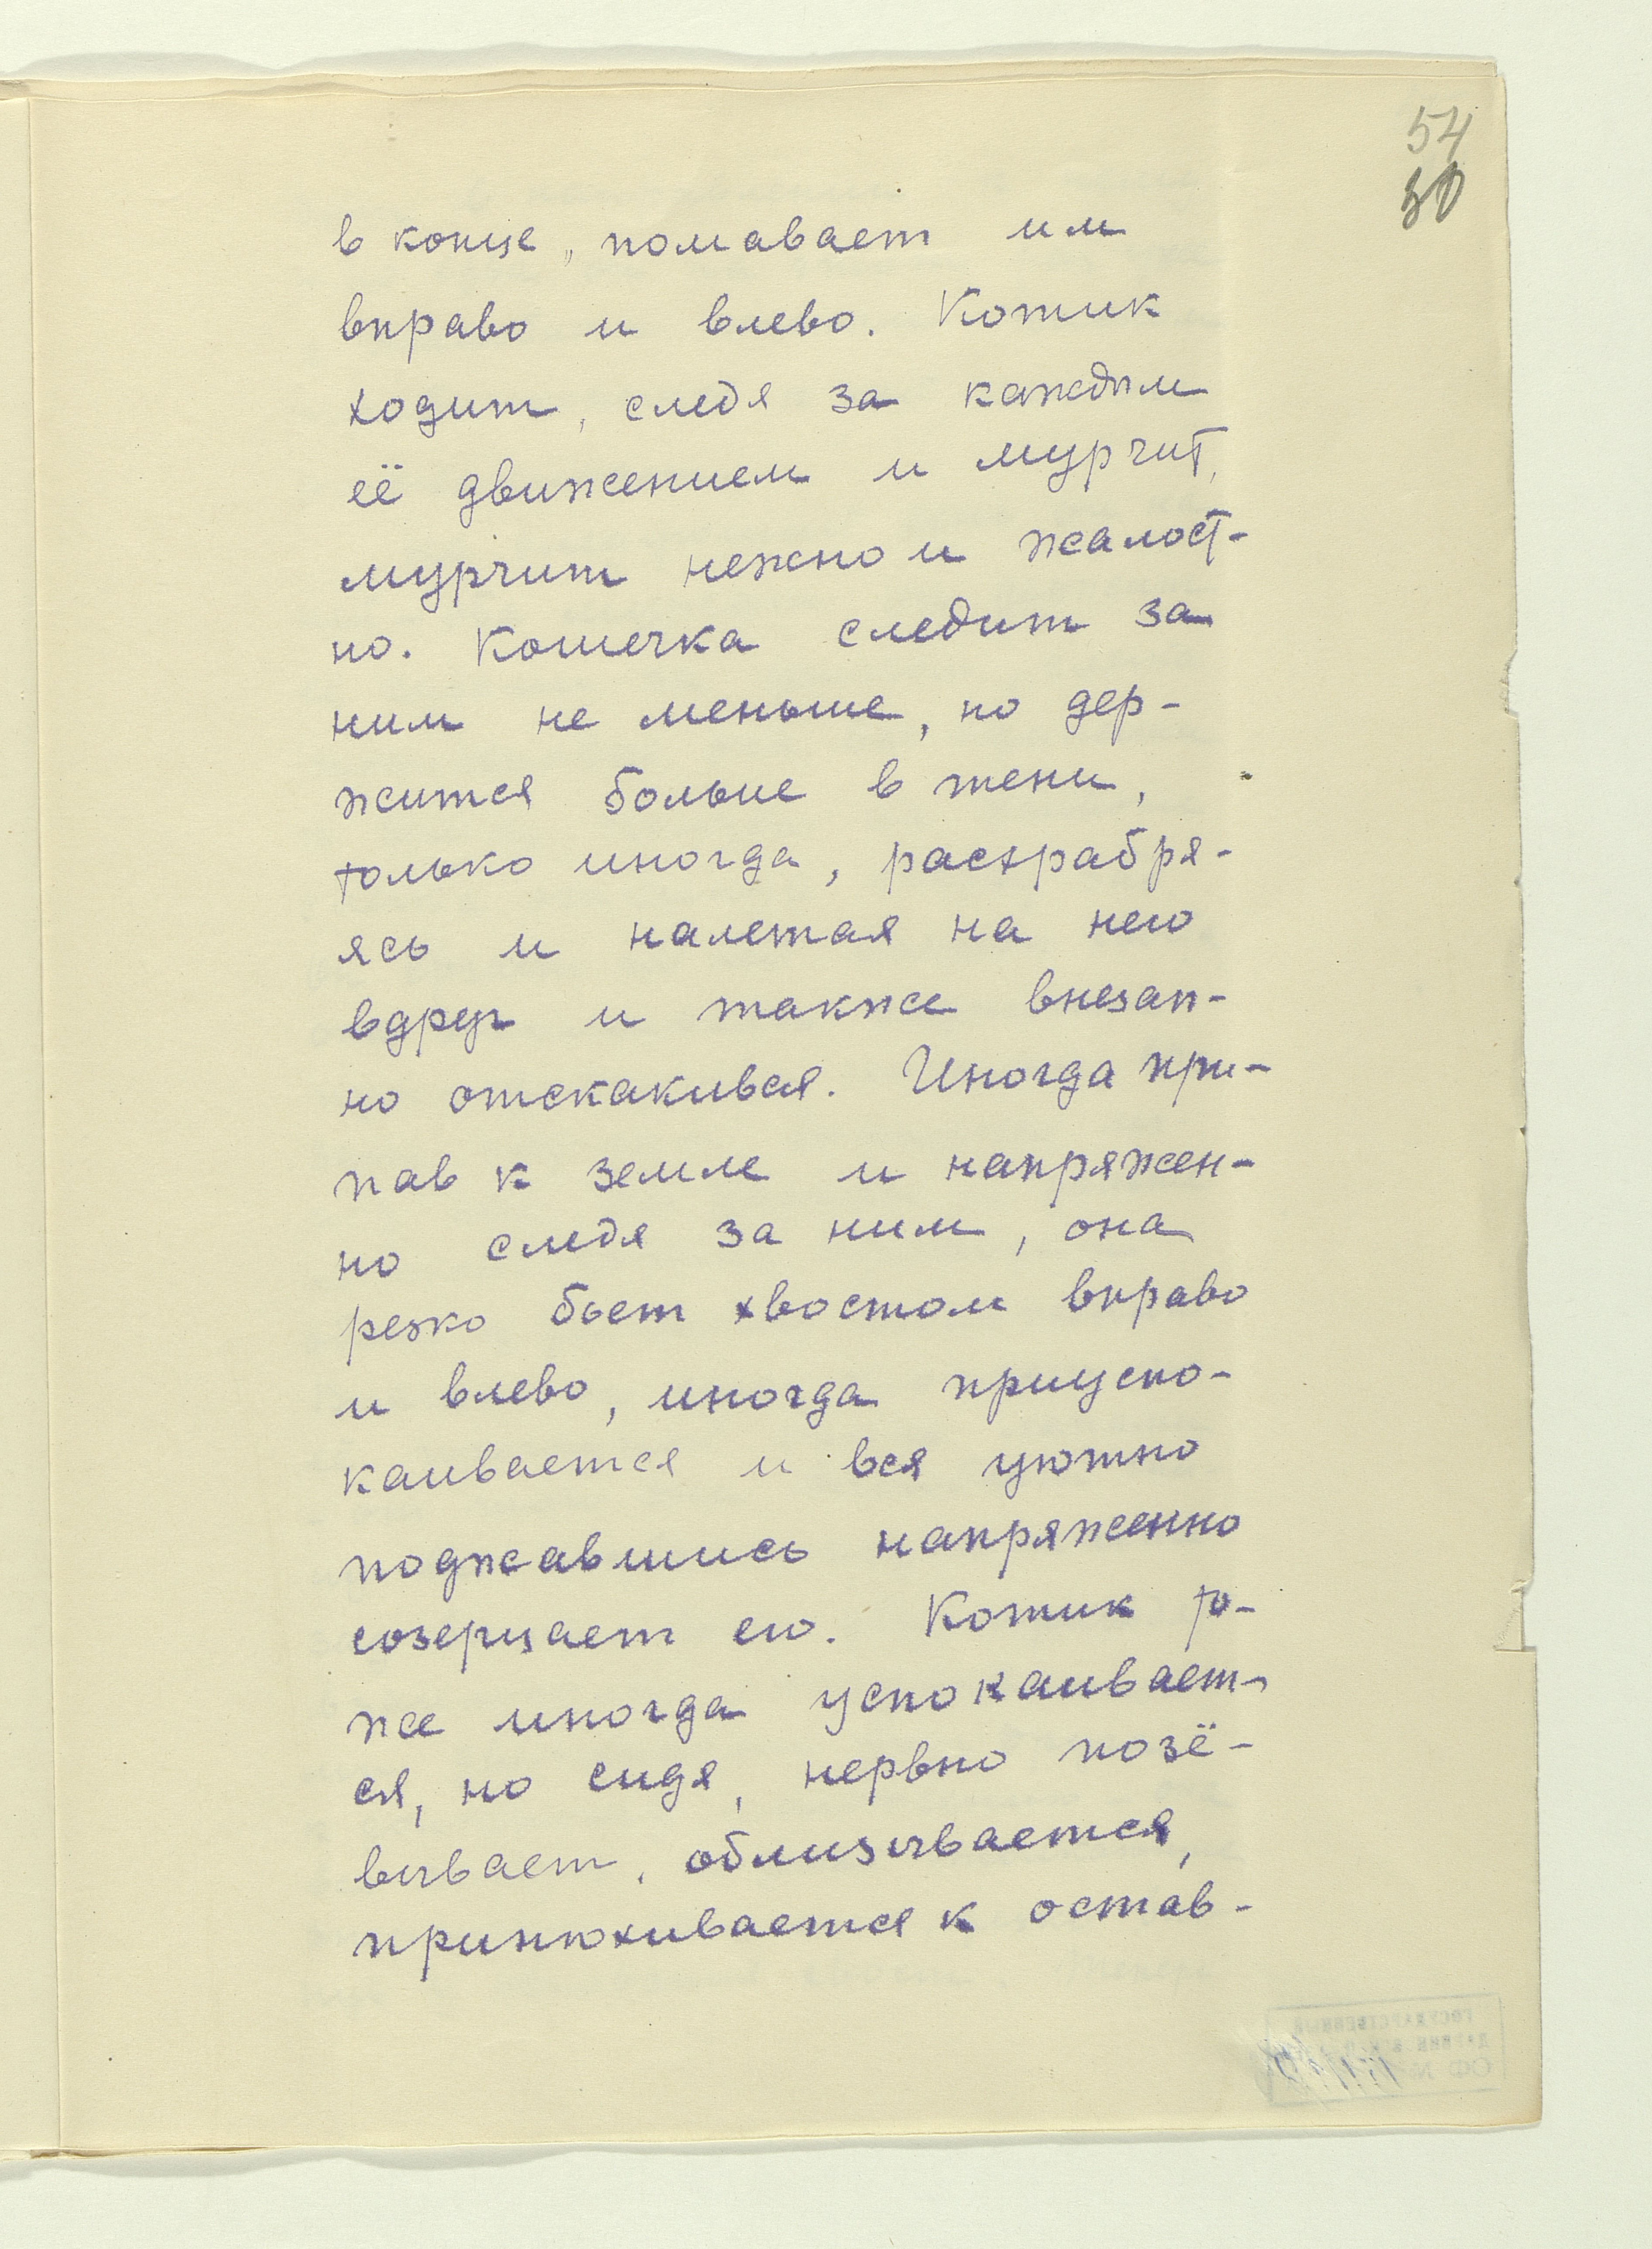 54
30
в конце, помавает им
вправо и влево. Котик
ходит, следя за каждым
её движением и мурчит,
мурчит нежно и жалост-
но. Кошечка следит за
ним не меньше, но дер-
жится больше в тени,
только иногда, расхрабря-
ясь и налетая на него
вдруг и также внезап-
но отскакивая. Иногда при-
пав к земле и напряжен-
но следя за ним, она
резко бьет хвостом вправо
и влево, иногда приуспо-
каивается и вся уютно
поджавшись напряженно
созерцает его. Котик то-
же иногда успокаивает-
ся, но сидя, нервно позё-
вывает, облизывается,
принюхивается к остав-